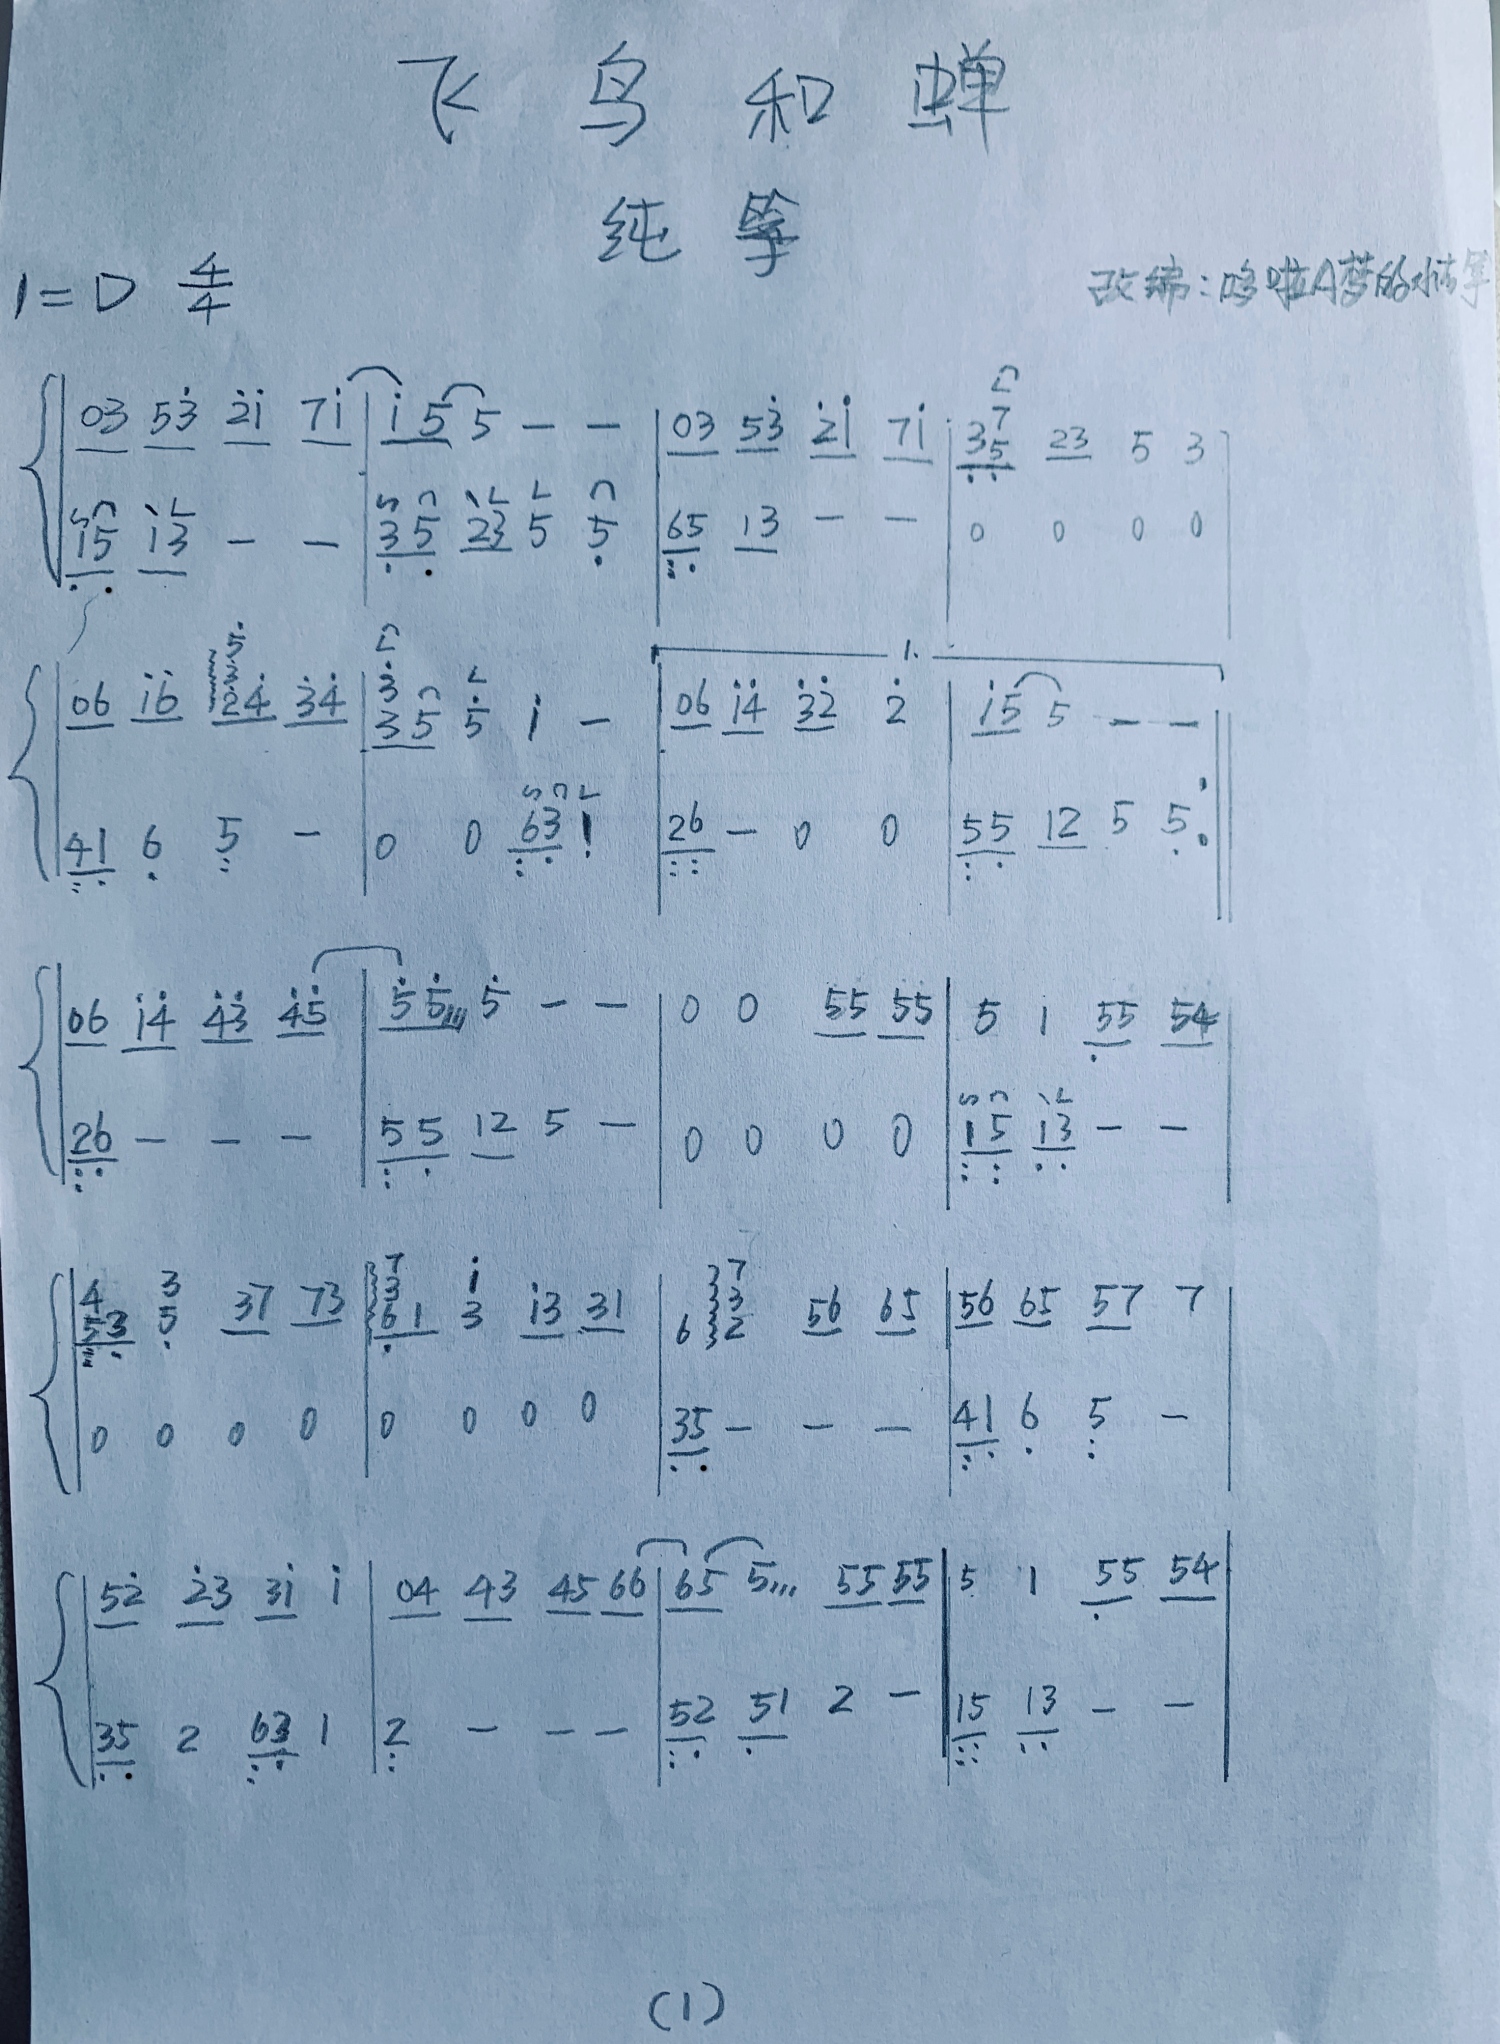 飞鸟和蝉
纯筝
1=D 4/4
改编:哆啦A梦的小古筝
03 53 21 71 | 1 5 5 - - | 03 53 21 71 | 37/5 23 5 3
15 13 - - | 35 23 5 5 | 65 13 - - | 0 0 0 0
1.
06 16 5/3/24 34 | 3/35 5 1 - | 06 14 32 2 | 15 5 - -
41 6 5 - | 0 0 63 1 | 26 - 0 0 | 55 12 5 5 :
06 14 43 45 | 5 5 /// 5 - - | 0 0 55 55 | 5 1 55 54
26 - - - | 55 12 5 - | 0 0 0 0 | 15 13 - -
4/53 3/5 37 73 | 7/3/61 1/3 13 31 | 6 7/3/2 56 65 | 56 65 57 7
0 0 0 0 | 0 0 0 0 | 35 - - - | 41 6 5 -
52 23 31 1 | 04 43 45 66 | 65 5/// 55 55 | 5 1 55 54
35 2 63 1 | 2 - - - | 52 51 2 - | 15 13 - -
(1)